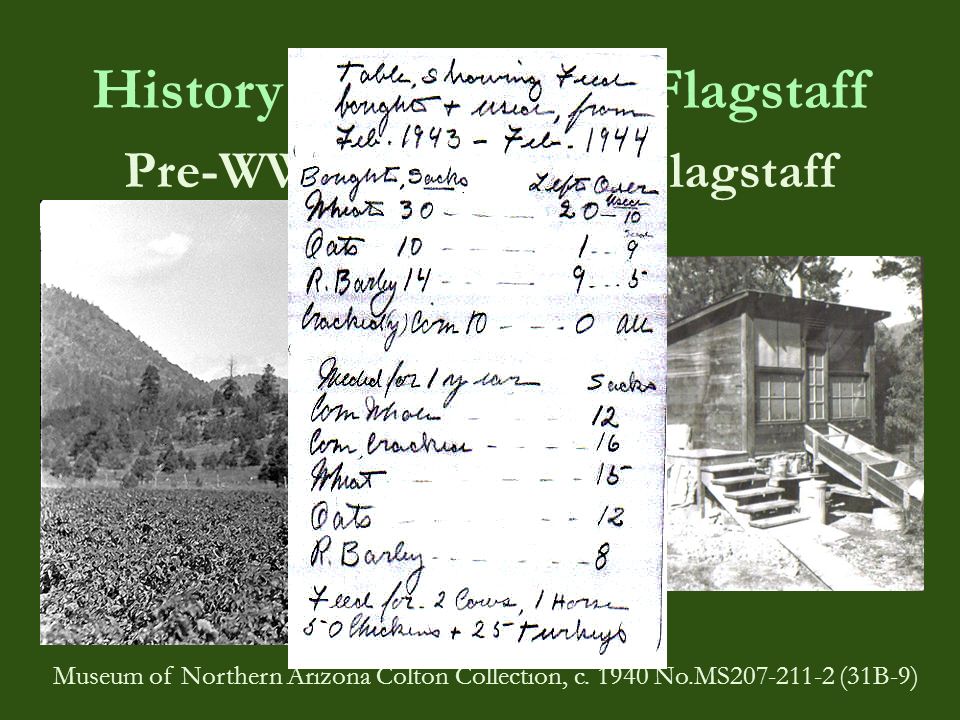 History Flagstaff
Pre-WW lagstaff
Table, showing Feed
bought + used, from
Feb. 1943 - Feb. 1944
Bought, Sacks Left Over
Used
Wheat 30 - - - - 20 - 10
Oats 10 - - - - 1 - - 9
R. Barley 14 - - - - 9 - - - 5
Cracked Corn 10 - - - - 0 all
Needed for 1 year Sacks
Corn Whole 12
Corn, Cracked - - - - 16
Wheat - - - - 15
Oats - - - - 12
R. Barley - - - - 8
Feed for - 2 Cows, 1 Horse
50 Chickens + 25 turkeys
Museum of Northern Arizona Colton Collection, c. 1940 No.MS207-211-2 (31B-9)